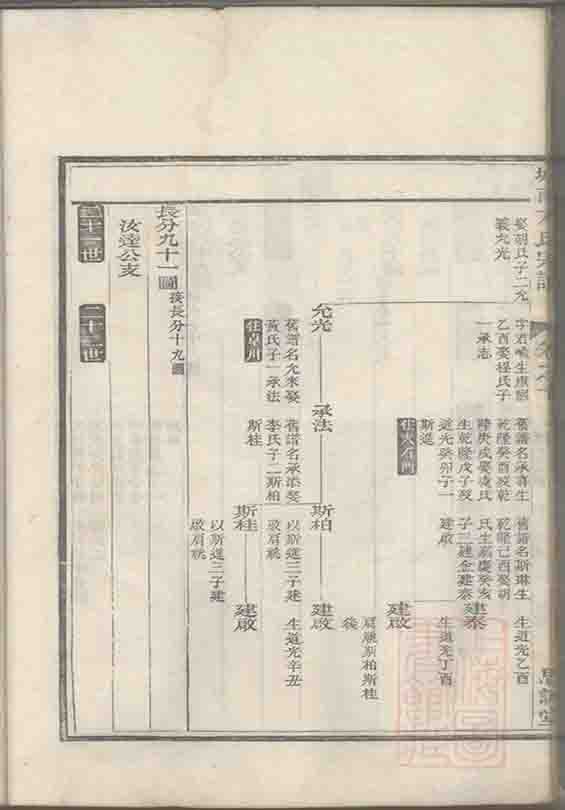 娶胡氏子二允
義允光
字君
乙酉娶程氏子
一承志
舊譜名承壽生
乾隆癸酉歿乾
隆庚戌娶凌氏
生乾隆戊子歿
道光癸卯子一
斯進
舊譜名斯琳生
乾隆己酉娶胡
氏生嘉慶癸亥
子三建金建泰
建啟
生道光乙酉
建泰
生道光丁酉
建啟
肩祧斯柏斯桂
後
允光
舊譜名允來娶
黃氏子一承法
承法
舊譜名承添娶
李氏子二斯柏
斯桂
斯柏
以斯進三子建
啟肩祧
建啟
生道光辛丑
斯桂
以斯進三子建
啟肩祧
建啟
長分九十一圖
接長分十九圖
汝達公支
二十二世